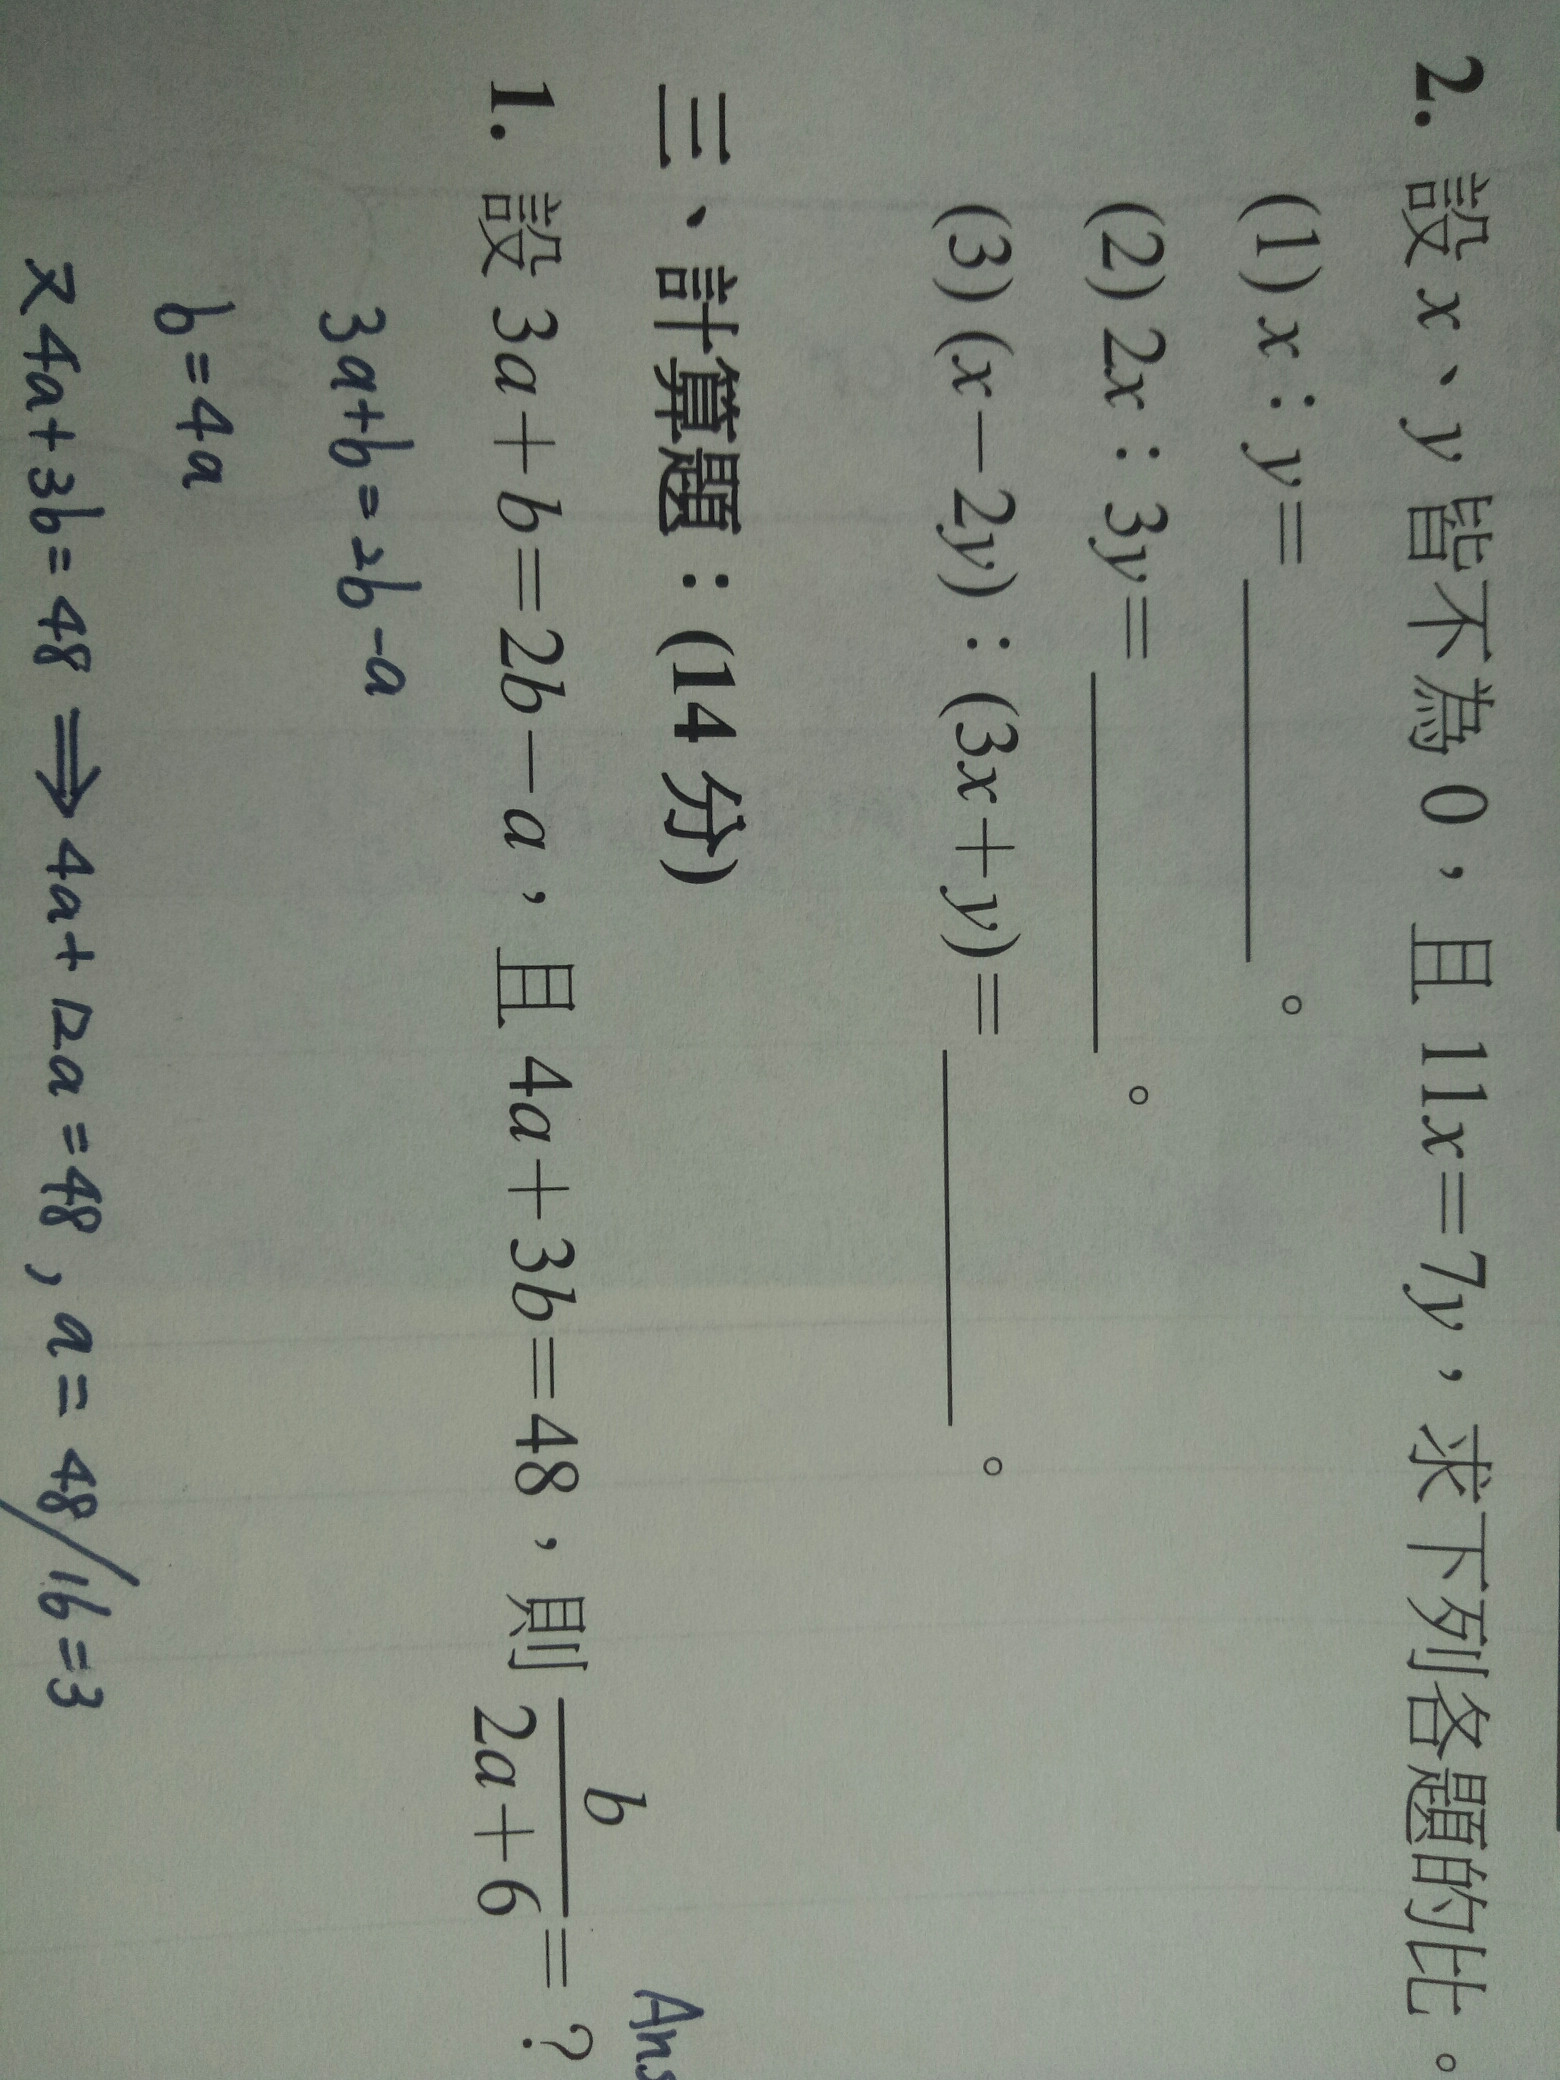 2. 設 x、y 皆不為 0，且 11x=7y，求下列各題的比。
(1) x：y=＿＿＿＿。
(2) 2x：3y=＿＿＿＿。
(3) (x-2y)：(3x+y)=＿＿＿＿。
三、計算題：(14 分)
1. 設 3a+b=2b-a，且 4a+3b=48，則 b/(2a+6)=？
Ans
3a+b=2b-a
b=4a
又4a+3b=48 ⟹ 4a+12a=48, a=48/16=3